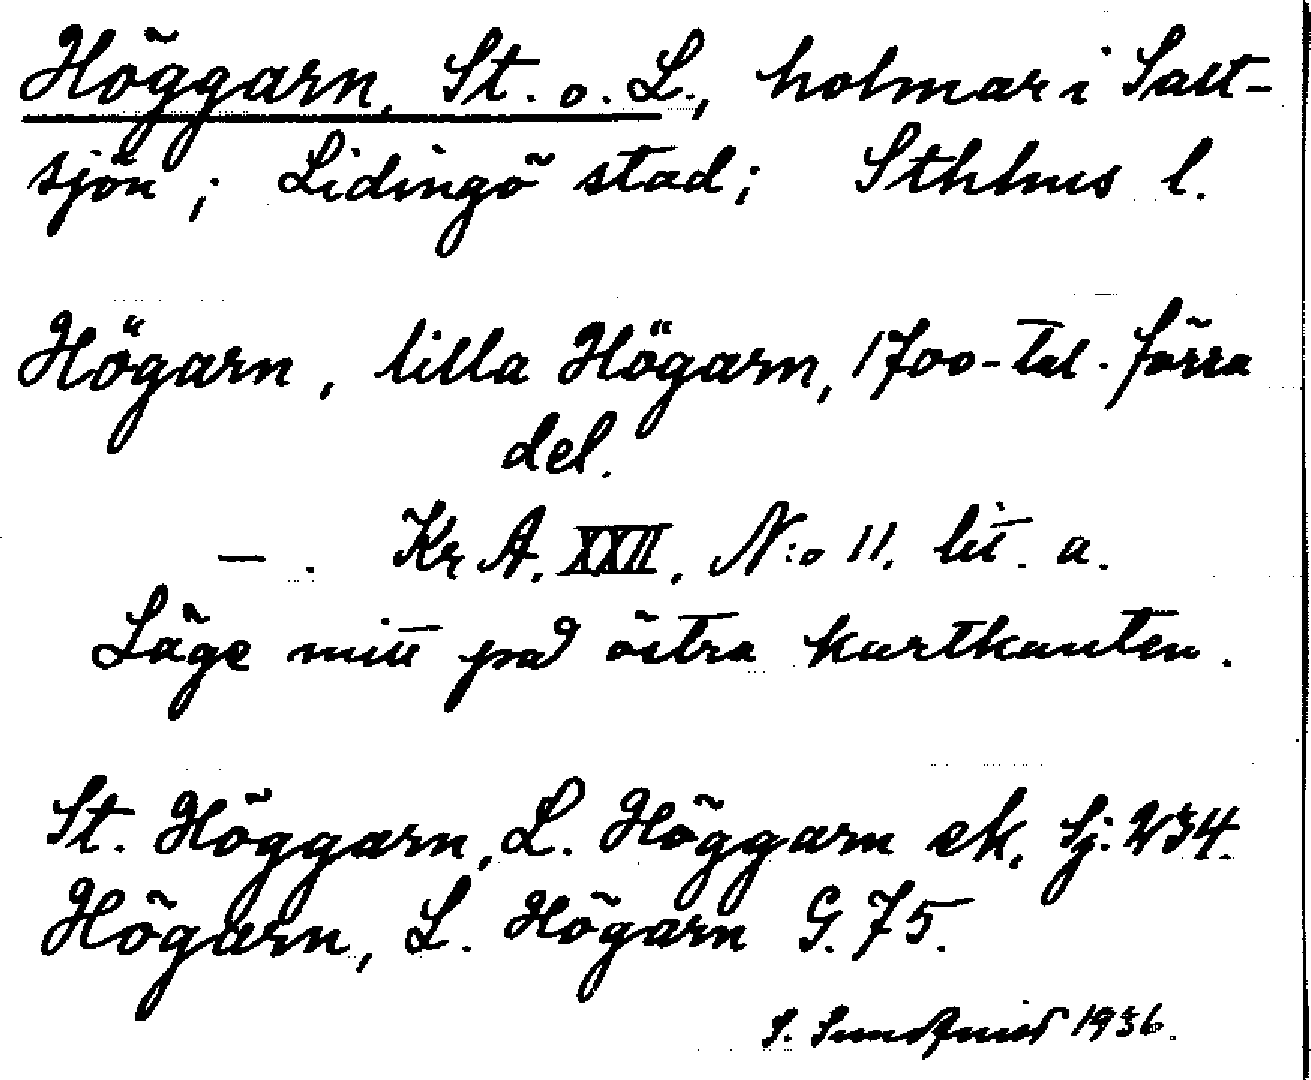 Höggarn, St. o. L., holmar i Salt-
sjön; Lidingö stad; Sthlms l.
Högarn, lilla Högarn, 1700-tal. förra
del.
— . Kr A. XXII. N:o 11. lit. a.
Läge mitt på östra kartkanten.
St. Höggarn, L. Höggarn ek. Sj: 234.
Högarn, L. Högarn G. 75.
S. Sundqvist 1936.